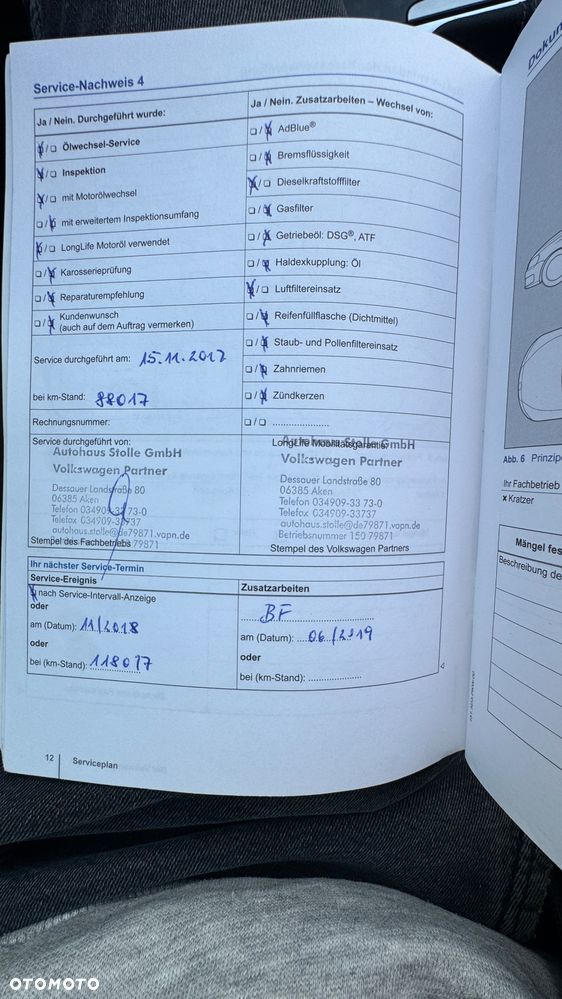 Service-Nachweis 4
Ja / Nein. Durchgeführt wurde:
☒/☐ Ölwechsel-Service
☒/☐ Inspektion
☒/☐ mit Motorölwechsel
☐/☒ mit erweitertem Inspektionsumfang
☒/☐ LongLife Motoröl verwendet
☐/☒ Karosserieprüfung
☐/☒ Reparaturempfehlung
☐/☒ Kundenwunsch
(auch auf dem Auftrag vermerken)
Service durchgeführt am: 15.11.2017
bei km-Stand: 88017
Rechnungsnummer:
Service durchgeführt von:
Autohaus Stolle GmbH
Volkswagen Partner
Dessauer Landstraße 80
06385 Aken
Telefon 034909-33 73-0
Telefax 034909-33737
autohaus.stolle@de79871.vapn.de
79871
Stempel des Fachbetriebs
Ja / Nein. Zusatzarbeiten – Wechsel von:
☐/☒ AdBlue®
☐/☒ Bremsflüssigkeit
☒/☐ Dieselkraftstofffilter
☐/☒ Gasfilter
☐/☒ Getriebeöl: DSG®, ATF
☐/☒ Haldexkupplung: Öl
☒/☐ Luftfiltereinsatz
☐/☒ Reifenfüllflasche (Dichtmittel)
☐/☒ Staub- und Pollenfiltereinsatz
☐/☒ Zahnriemen
☐/☒ Zündkerzen
☐/☐ ....................
LongLife Mobilitätsgarantie
Autohaus Stolle GmbH
Volkswagen Partner
Dessauer Landstraße 80
06385 Aken
Telefon 034909-33 73-0
Telefax 034909-33737
autohaus.stolle@de79871.vapn.de
Betriebsnummer 150 79871
Stempel des Volkswagen Partners
Ihr nächster Service-Termin
Service-Ereignis
☒ nach Service-Intervall-Anzeige
oder
am (Datum): 11/2018
oder
bei (km-Stand): 118017
Zusatzarbeiten
BF
am (Datum): 06/2019
oder
bei (km-Stand): ....................
12
Serviceplan
Dokum
Abb. 6 Prinzip
Ihr Fachbetrieb
x Kratzer
Mängel fes
Beschreibung de
OTOMOTO